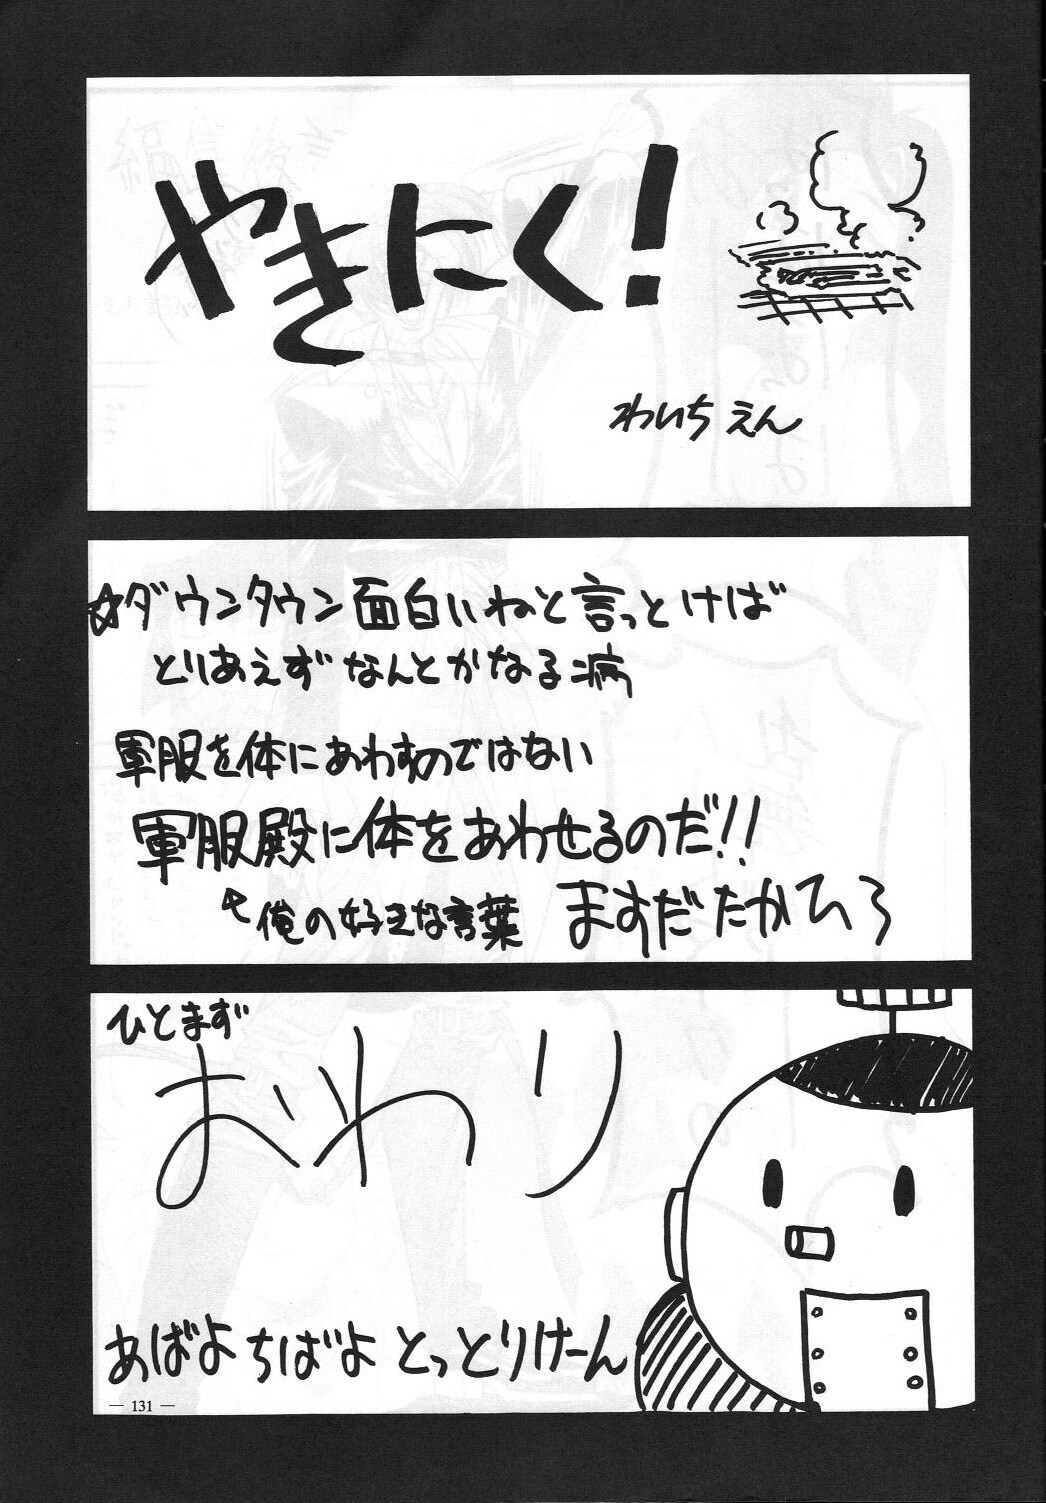 やきにく!
わいちえん
☆ダウンタウン面白いねと言っとけば
とりあえずなんとかなる病
軍服を体にあわすのではない
軍服殿に体をあわせるのだ!!
↖俺の好きな言葉 ますだたかひろ
ひとまず
おわり
あばよちばよとっとりけーん
— 131 —